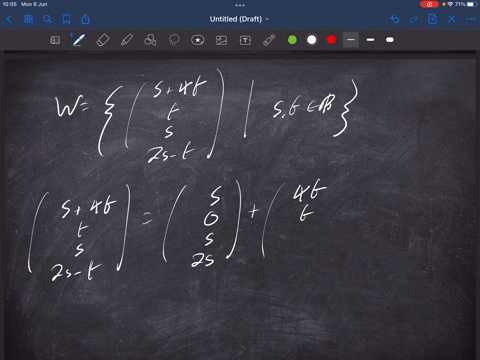 10:05 Mon 6 Jun
71%
Untitled (Draft)
W = { ( s + 4t
t
s
2s - t ) | s, t ∈ ℝ }
( s + 4t
t
s
2s - t ) = ( s
0
s
2s ) + ( 4t
t